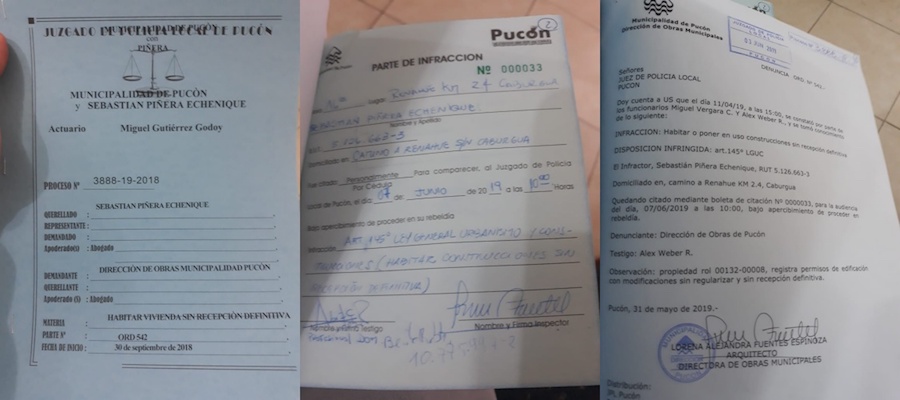 JUZGADO DE POLICIA LOCAL DE PUCÓN
con
PIÑERA
MUNICIPALIDAD DE PUCÓN
y SEBASTIAN PIÑERA ECHENIQUE
Actuario Miguel Gutiérrez Godoy
PROCESO Nº 3888-19-2018
SEBASTIAN PIÑERA ECHENIQUE
QUERELLADO :
REPRESENTANTE :
DEMANDADO :
Apoderado(s) : Abogado
DIRECCIÓN DE OBRAS MUNICIPALIDAD PUCÓN
DEMANDANTE :
QUERELLANTE :
Apoderado (s) : Abogado
MATERIA : HABITAR VIVIENDA SIN RECEPCIÓN DEFINITIVA
PARTE Nº : ORD 542
FECHA DE INICIO : 30 de septiembre de 2018
2
Pucón
PARTE DE INFRACCION
Nº 000033
Lugar Renahue Km 2.4 Caburgua
SEBASTIAN PIÑERA ECHENIQUE
Nombre y Apellido
5.126.663-3
Domiciliado en CAMINO A RENAHUE S/N CABURGUA
Fue citado Personalmente Para comparecer, al Juzgado de Policía
Por Cédula
Local de Pucón, el día 07 de JUNIO de 20 19 a las 10:00 Horas
Bajo apercibimiento de proceder en su rebeldía
Infracción: ART. 145° LEY GENERAL URBANISMO Y CONS-
TRUCCIONES (HABITAR CONSTRUCCIONES SIN
RECEPCIÓN DEFINITIVA)
Nombre y Firma Testigo
Nombre y Firma Inspector
Municipalidad de Pucón
Dirección de Obras Municipales
03 JUN 2019
DENUNCIA ORD. Nº
Señores
JUEZ DE POLICIA LOCAL
PUCON
Doy cuenta a US que el día 11/04/19, a las 15:00, se constató por parte de
los funcionarios Miguel Vergara C. Y Alex Weber R., y se tomó conocimiento
de lo siguiente:
INFRACCIÓN: Habitar o poner en uso construcciones sin recepción definitiva
DISPOSICION INFRINGIDA: art.145º LGUC
El Infractor, Sebastián Piñera Echenique, RUT 5.126.663-3
Domiciliado en, camino a Renahue KM 2.4, Caburgua
Quedando citado mediante boleta de citación Nº 0000033, para la audiencia
del día, 07/06/2019 a las 10:00, bajo apercibimiento de proceder en
rebeldía.
Denunciante: Dirección de Obras de Pucón
Testigo: Alex Weber R.
Observación: propiedad rol 00132-00008, registra permisos de edificación
con modificaciones sin regularizar y sin recepción definitiva.
Pucón, 31 mayo de 2019.-
LORENA ALEJANDRA FUENTES ESPINOZA
ARQUITECTO
DIRECTORA DE OBRAS MUNICIPALES
Distribución: